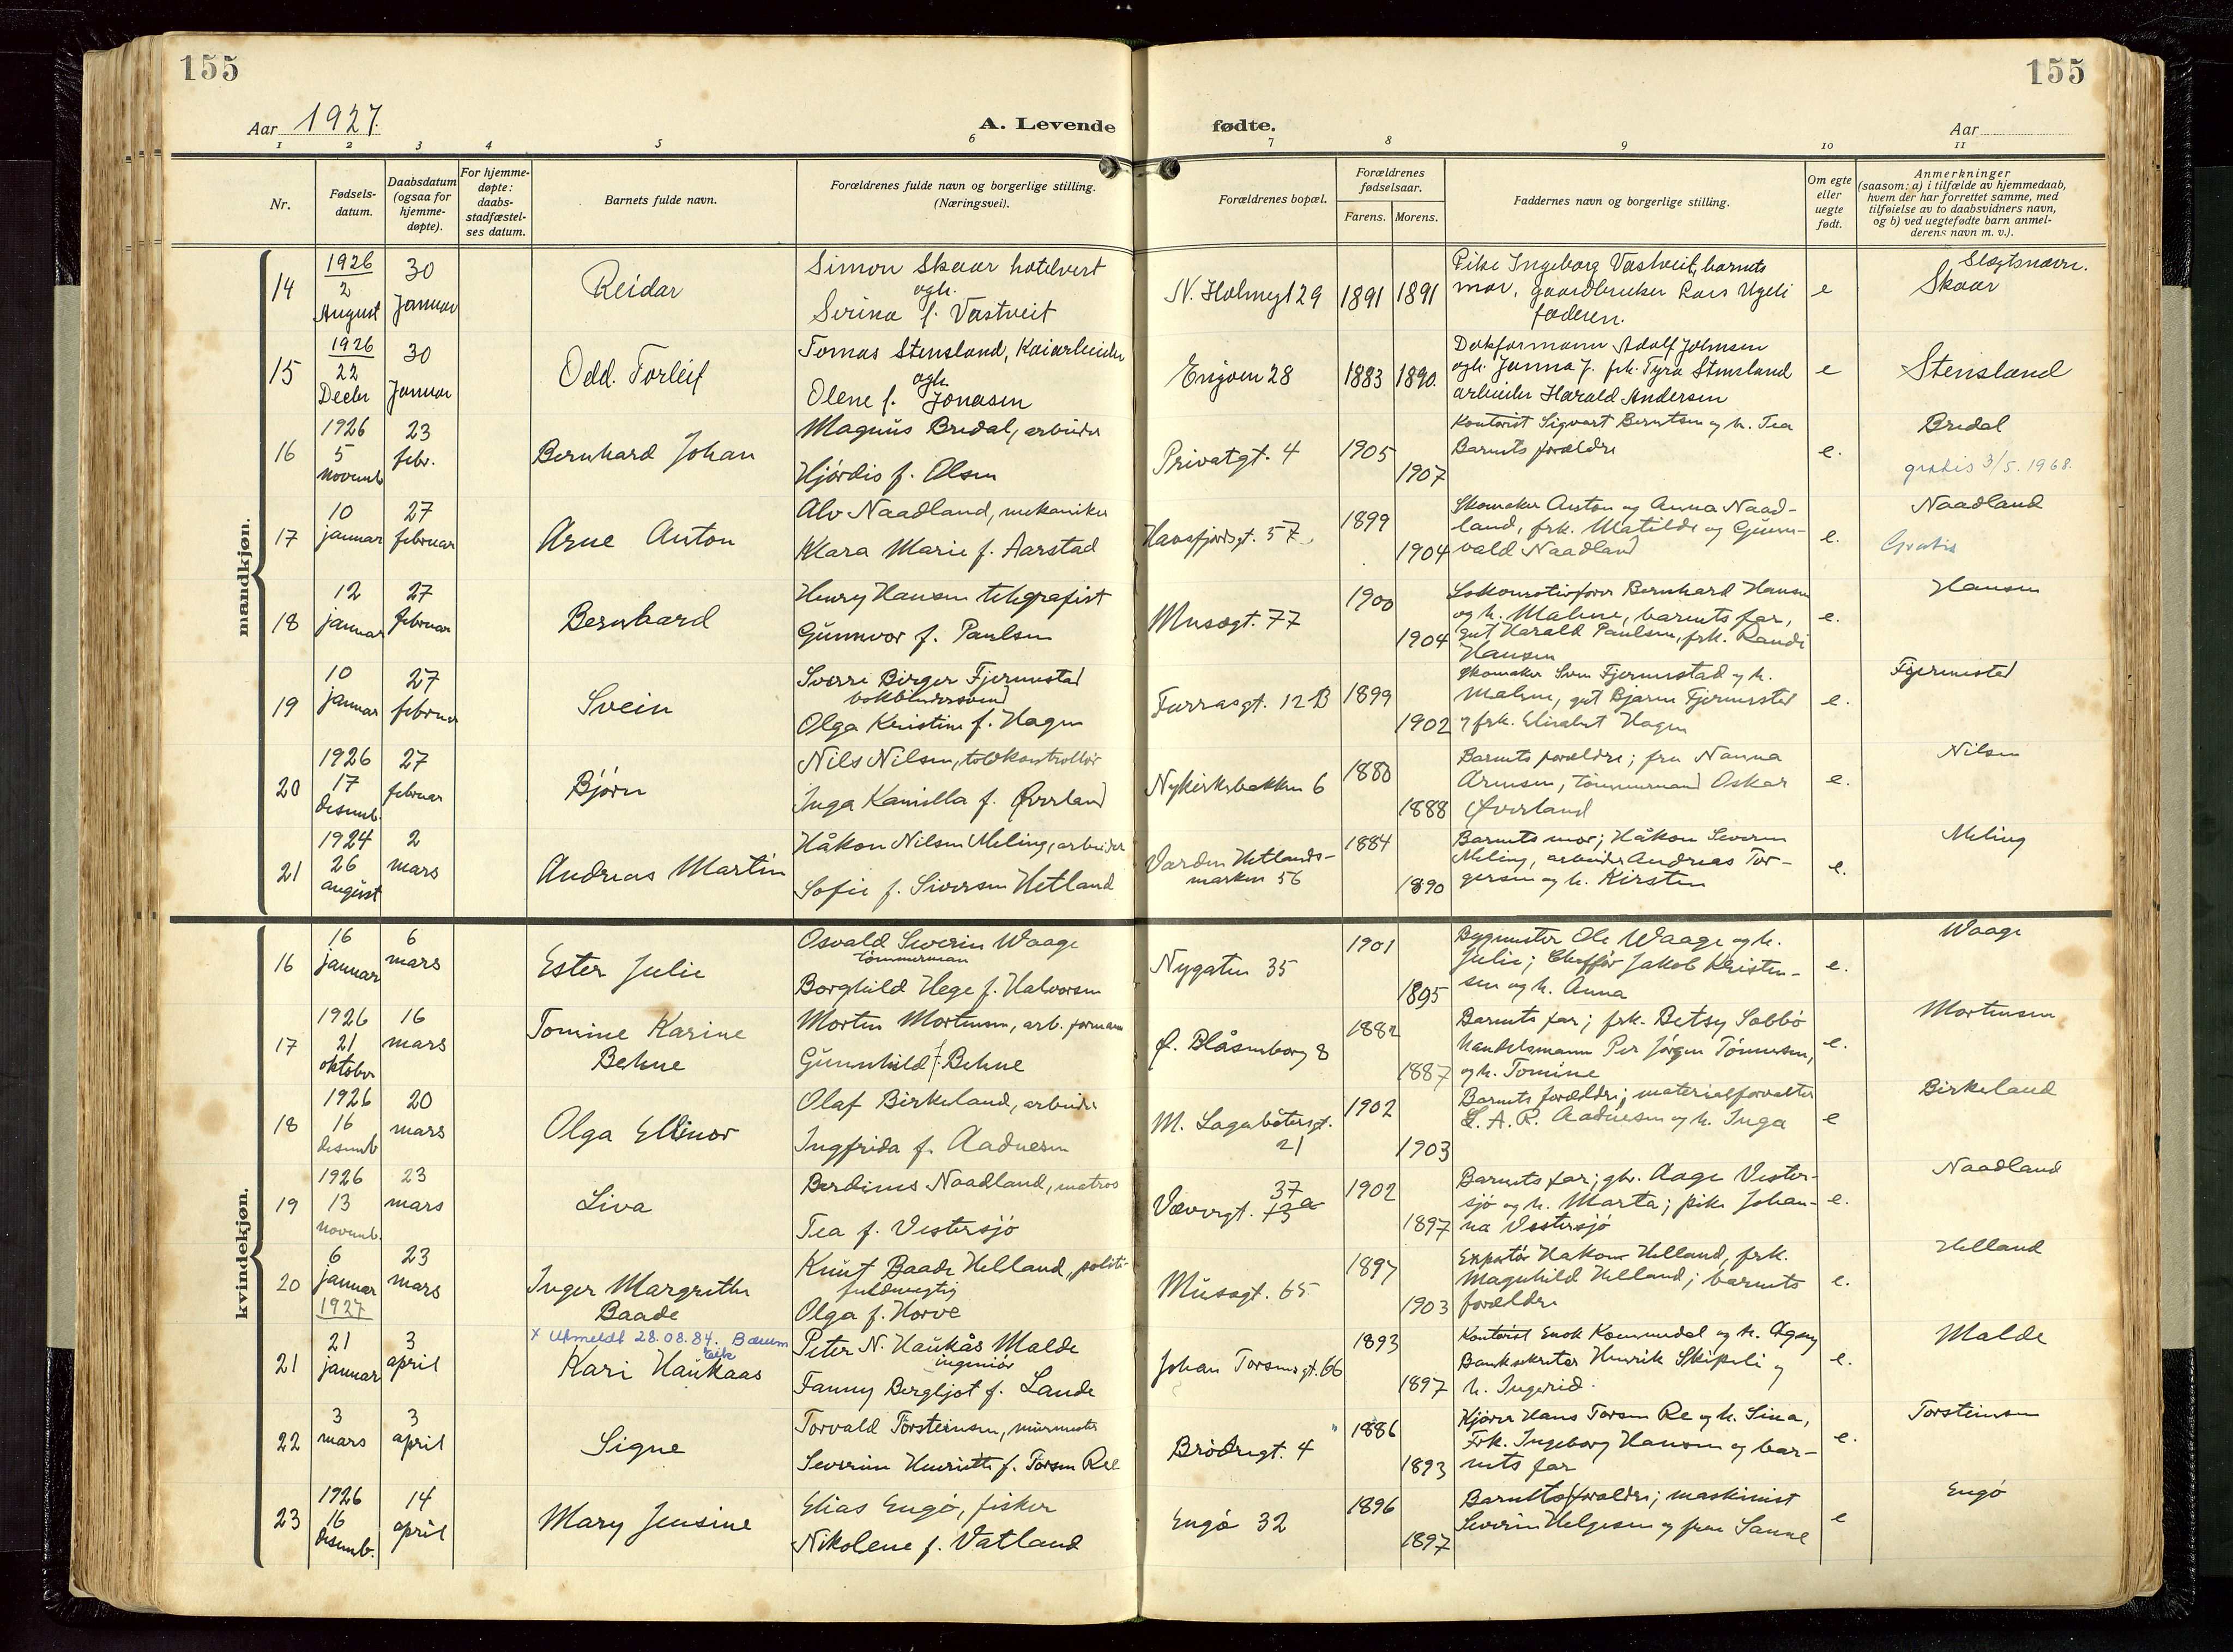 155
155
Aar 1927.
A. Levende fødte.
Aar
1 2 3 4 5 6 7 8 9 10 11
Nr.
Fødsels-
datum.
Daabsdatum
(ogsaa for
hjemme-
døpte).
For hjemme-
døpte:
daabs-
stadfæstel-
ses datum.
Barnets fulde navn.
Forældrenes fulde navn og borgerlige stilling.
(Næringsvei).
Forældrenes bopæl.
Forældrenes
fødselsaar.
Farens. Morens.
Faddernes navn og borgerlige stilling.
Om egte
eller
uegte
født.
Anmerkninger
(saasom: a) i tilfælde av hjemmedaab,
hvem der har forrettet samme, med
tilføielse av to daabsvidners navn,
og b) ved uegtefødte barn anmel-
derens navn m. v.).
mandkjøn.
14
1926
2
August
30
Januar
Reidar
Simon Skaar hotelvert
ogh.
Serina f. Vastveit
N. Holmegt 29
1891
1891
Pike Ingeborg Vastveit, barnets
mor, gaardbruker Lars Ugeli
faderen.
e
Slegtsnavn.
Skaar
15
1926
22
Decbr
30
Januar
Odd. Torleif
Tomas Stensland, Kaiarbeider
ogh.
Olene f. Jonasen
Engøen 28
1883
1890.
Dekformann Adolf Johnsen
ogh. Janna J. frk. Tyra Stensland
arbeider Harald Andersen
e
Stensland
16
1926
5
novemb.
23
febr.
Bernhard Johan
Magnus Bredal, arbeider
Hjørdis f. Olsen
Privatgt. 4
1905
1907
Kontorist Sigvart Berntsen og h. Tea
Barnets forældre
e.
Bredal
gratis 3/5. 1968.
17
10
januar
27
februar
Arne Anton
Alv Naadland, mekaniker
Klara Marie f. Aarstad
Havsfjordsgt. 57
1899
1904
Skomaker Anton og Anna Naad-
land, frk. Matilde og Gunn-
vald Naadland
e.
Naadland
Gratis
18
12
januar
27
februar
Bernhard
Henry Hansen telegrafist
Gunnvor f. Paulsen
Musegt. 77
1900
1904
Lokomotivfører Bernhard Hansen
og h. Malene, barnets far,
gut Harald Paulsen, frk. Randi
Hansen
e.
Hansen
19
10
januar
27
februar
Svein
Sverre Birger Fjermestad
bokbindersvend
Olga Kristine f. Hagen
Furrasgt. 12 B
1899
1902
Skomaker Sven Fjermestad og h.
Malene, gut Bjarne Fjermestad
og frk. Elisabet Hagen
e.
Fjermestad
20
1926
17
desemb.
27
februar
Bjørn
Nils Nilsen, toldkontrollør
Inga Kamilla f. Øverland
Nykirkebakken 6
1880
1888
Barnets forældre; fru Nanna
Arnesen, tømmermand Oskar
Øverland
e.
Nilsen
21
1924
26
august
2
mars
Andreas Martin
Håkon Nilsen Meling, arbeider
Sofie f. Siversen Hetland
Varden Hetlands-
marken 56
1884
1890
Barnets mor; Håkon Severin
Meling, arbeider Andreas Tor-
gersen og h. Kirsten
e.
Meling
kvindekjøn.
16
16
januar
6
mars
Ester Julie
Osvald Severin Waage
tømmerman
Borghild Hege f. Halvorsen
Nygaten 35
1901
1895
Bygmester Ole Waage og h.
Julie; Chaffør Jakob Kristen-
sen og h. Anna
e.
Waage
17
1926
21
oktober
16
mars
Tomine Karine
Behne
Morten Mortensen, arb. formann
Gunnhild f. Behne
Ø. Blåsenborg 8
1882
1887
Barnets far; frk. Betsy Sobbø
handelsmann Per Jørgen Tønnesen,
og h. Tomine
e.
Mortensen
18
1926
16
desemb
20
mars
Olga Ellinor
Olaf Birkeland, arbeider
Ingfrida f. Aadnesen
M. Lagabøtersgt.
21
1902
1903
Barnets forældre; materialforvalter
L. A. R. Aadnesen og h. Inga
e
Birkeland
19
1926
13
novemb.
23
mars
Liva
Berdines Naadland, matros
Tea f. Vestersjø
37
Vævergt. 13 a
1902
1897
Barnets far; gbr. Aage Vester-
sjø og h. Marta; pike Johan-
na Vestersjø
e.
Naadland
20
6
januar
1927
23
mars
Inger Margrethe
Baade
Knut Baade Helland, politi-
fuldmegtig
Olga f. Horve
Musegt. 65
1897
1903
Expeditør Hakon Helland, frk.
Magnhild Helland; barnets
forældre
e.
Helland
x Utmeldt 28.08.84. Bærum
21
21
januar
3
april
Kari Haukaas
Peter N. Haukås Malde
ingeniør
Fanny Bergljot f. Lande
Johan Torsensgt. 66
1893
1897
Kontorist Enok Kommedal og h. Agny
Banksekretær Henrik Skipeli og
h. Ingerid.
e.
Malde
22
3
mars
3
april
Signe
Torvald Torsteinsen, murmester
Severine Henriette f. Torsen Ree
Brødregt. 4
1886
1893
Kjører Hans Torsen Re og h. Sina,
Frk. Ingeborg Hansen og bar-
nets far
e.
Torsteinsen
23
1926
16
desemb.
14
april
Mary Jensine
Elias Engø, fisker
Nikolene f. Vatland
Engø 32
1896
1897
Barnets forældre; maskinist
Severin Helgesen og frue Sanne
e
Engø